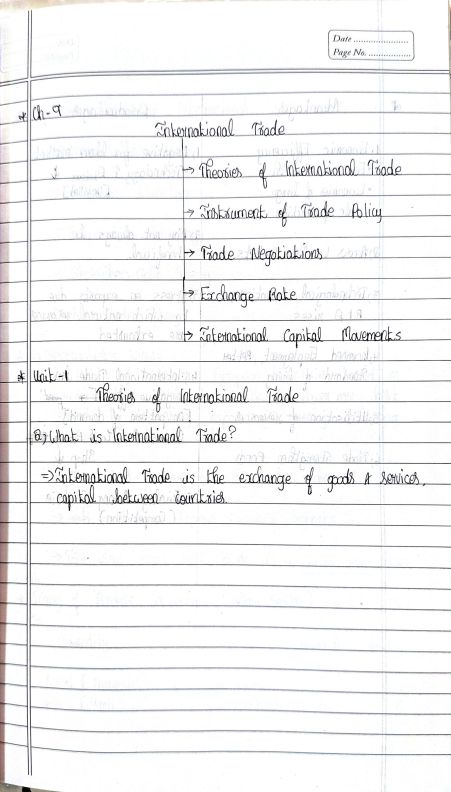 Date ......................
Page No. ..................
* Ch-9
International Trade
→ Theories of International Trade
→ Instrument of Trade Policy
→ Trade Negotiations
→ Exchange Rate
→ International Capital Movements
* Unit-1
Theories of International Trade
Q) What is International Trade?
⇒ International Trade is the exchange of goods & services,
capital between countries.